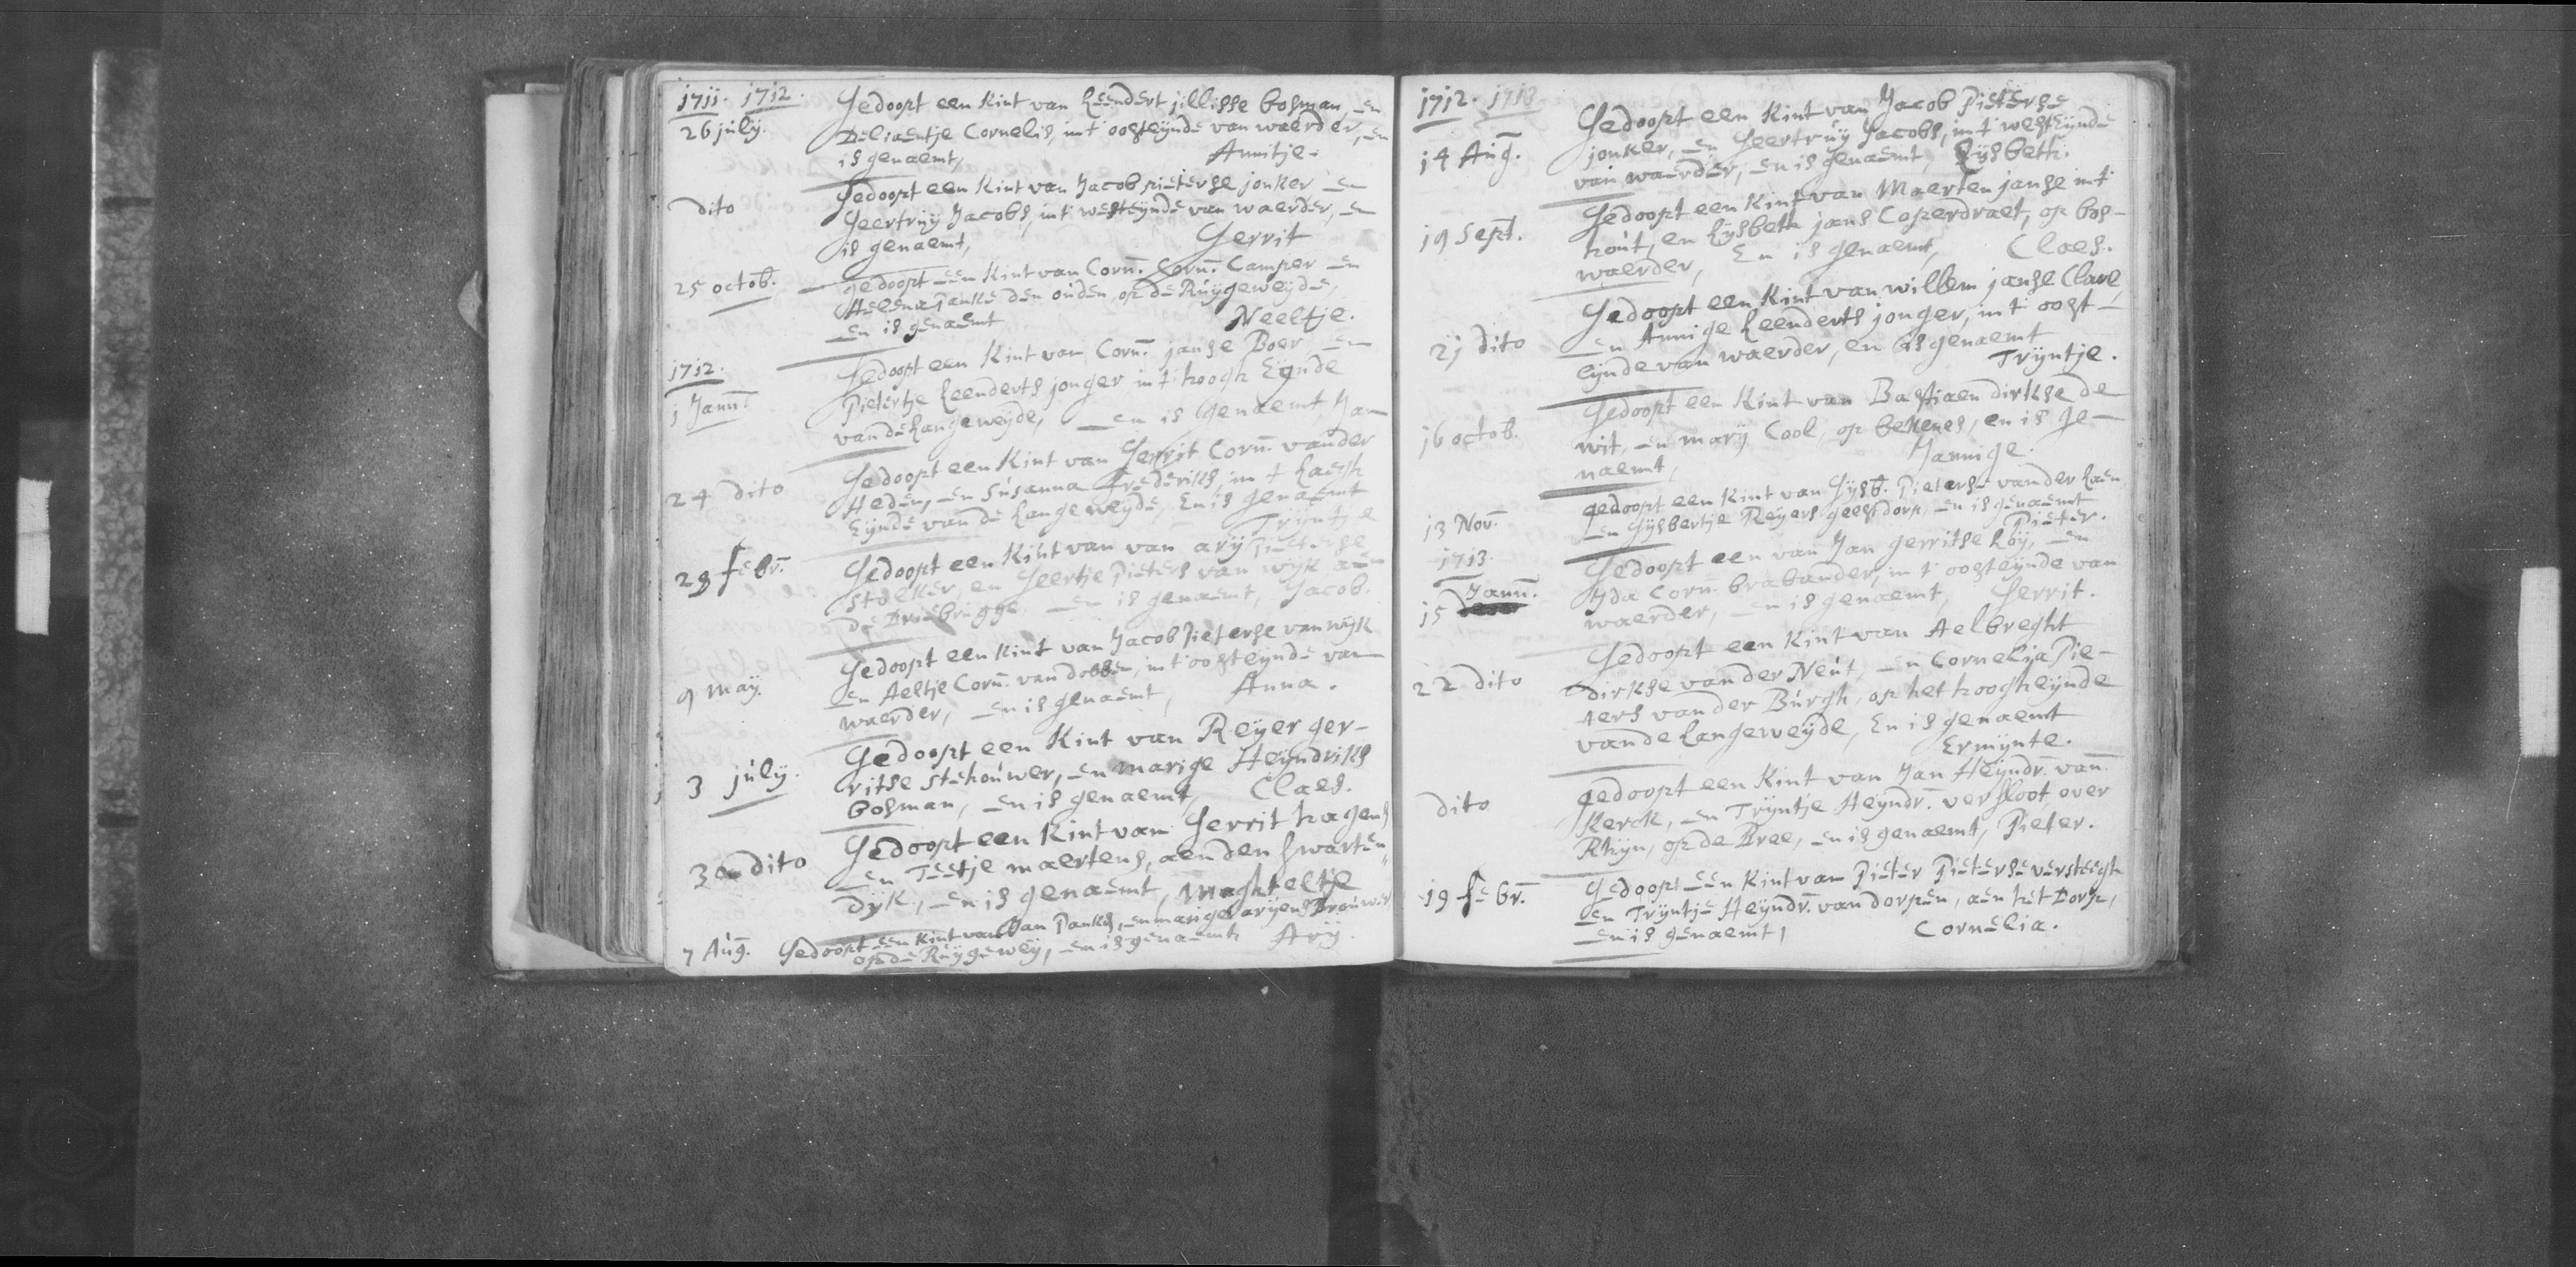 1711. 1712.
26 july. Gedoopt een Kint van Leendert jillisse bosman en
Deliaentje Cornelis, in t' oosteynde van waerder, en
is genaemt, Annitje.
dito Gedoopt een Kint van Jacob pieterse jonker en
Geertruy Jacobs, in t' westeynde van waerder, en
is genaemt, Gerrit
25 octob. gedoopt een Kint van Corn. Corn. Camper en
Helena Panke den ouden, op de Ruygeweyde,
en is genaemt Neeltje.
1712.
1 Jann. Gedoopt een Kint van Corn. janse Boer en
Pietertje Leenderts jonger in t hoogh Eynde
van de Langeweyde, en is genaemt Jan
24 dito Gedoopt een Kint van Gerrit Corn. vander
Heden, en Susanna Frederiks, in t Laegh
Eynde van de Langeweyde, En is genaemt
Tryntje
28 febr. Gedoopt een Kint van van ary Pieterse
Stolker, en Geertje Pieters van wyk aen
de Driebrugge, en is genaemt, Jacob.
9 may. Gedoopt een Kint van Jacob Pieterse van wyk
en Aeltje Corn. van dobben, in t' oosteynde van
waerder, en is genaemt, Anna.
3 july. Gedoopt een Kint van Reyer ger-
ritse Stehouwer, en marige Heyndriks
Bosman, en is genaemt, Claes.
30 dito Gedoopt een Kint van Gerrit hagens
en Teetje maertens, aen den Swarten
dyk, en is genaemt, Maghteltje
7 Aug. Gedoopt een Kint van Jan Panks, en marige aryens Brouwer
op de Ruygewey, en is genaemt Ary.
1712. 1713.
14 Aug. Gedoopt een Kint van Jacob Pieterse
jonker, en Geertruy Jacobs, in t' westeynde
van waerder, en is genaemt, Lysbeth.
19 Sept. Gedoopt een Kint van Maerten janse in t'
hout, en Lysbeth jans Coperdraet, op bos-
waerder, En is genaemt, Claes.
21 dito Gedoopt een Kint van willem janse Clare,
en Annige Leenderts jonger, in t' oost-
eynde van waerder, en is genaemt
Tryntje.
16 octob. Gedoopt een Kint van Bastiaen dirkse de
wit, en mary Cool, op bekenes, en is ge-
naemt, Jannige.
13 Nov. gedoopt een Kint van Gysb. Pieterse vander Laen
en Gysbertje Reyers geestdorp, en is genaemt
Pieter.
1713.
15 Jann. Gedoopt een van Jan gerritse Loy, en
Yda Corn. brabander, in t' oosteynde van
waerder, en is genaemt, Gerrit.
22 dito Gedoopt een Kint van Aelbreght
dirkse vander Neut, en Cornelia Pie-
ters vander Burgh, op het hoogheynde
vande Langeweyde, En is genaemt
Ermynte.
dito gedoopt een Kint van Jan Heyndr. van
Kerck, en Tryntje Heyndr. versloot, over
Rhyn, op de Bree, en is genaemt, Pieter.
19 febr. Gedoopt een Kint van Pieter Pieterse versteegh
en Tryntje Heyndr. van dorpen, aen het Dorp,
en is genaemt, Cornelia.